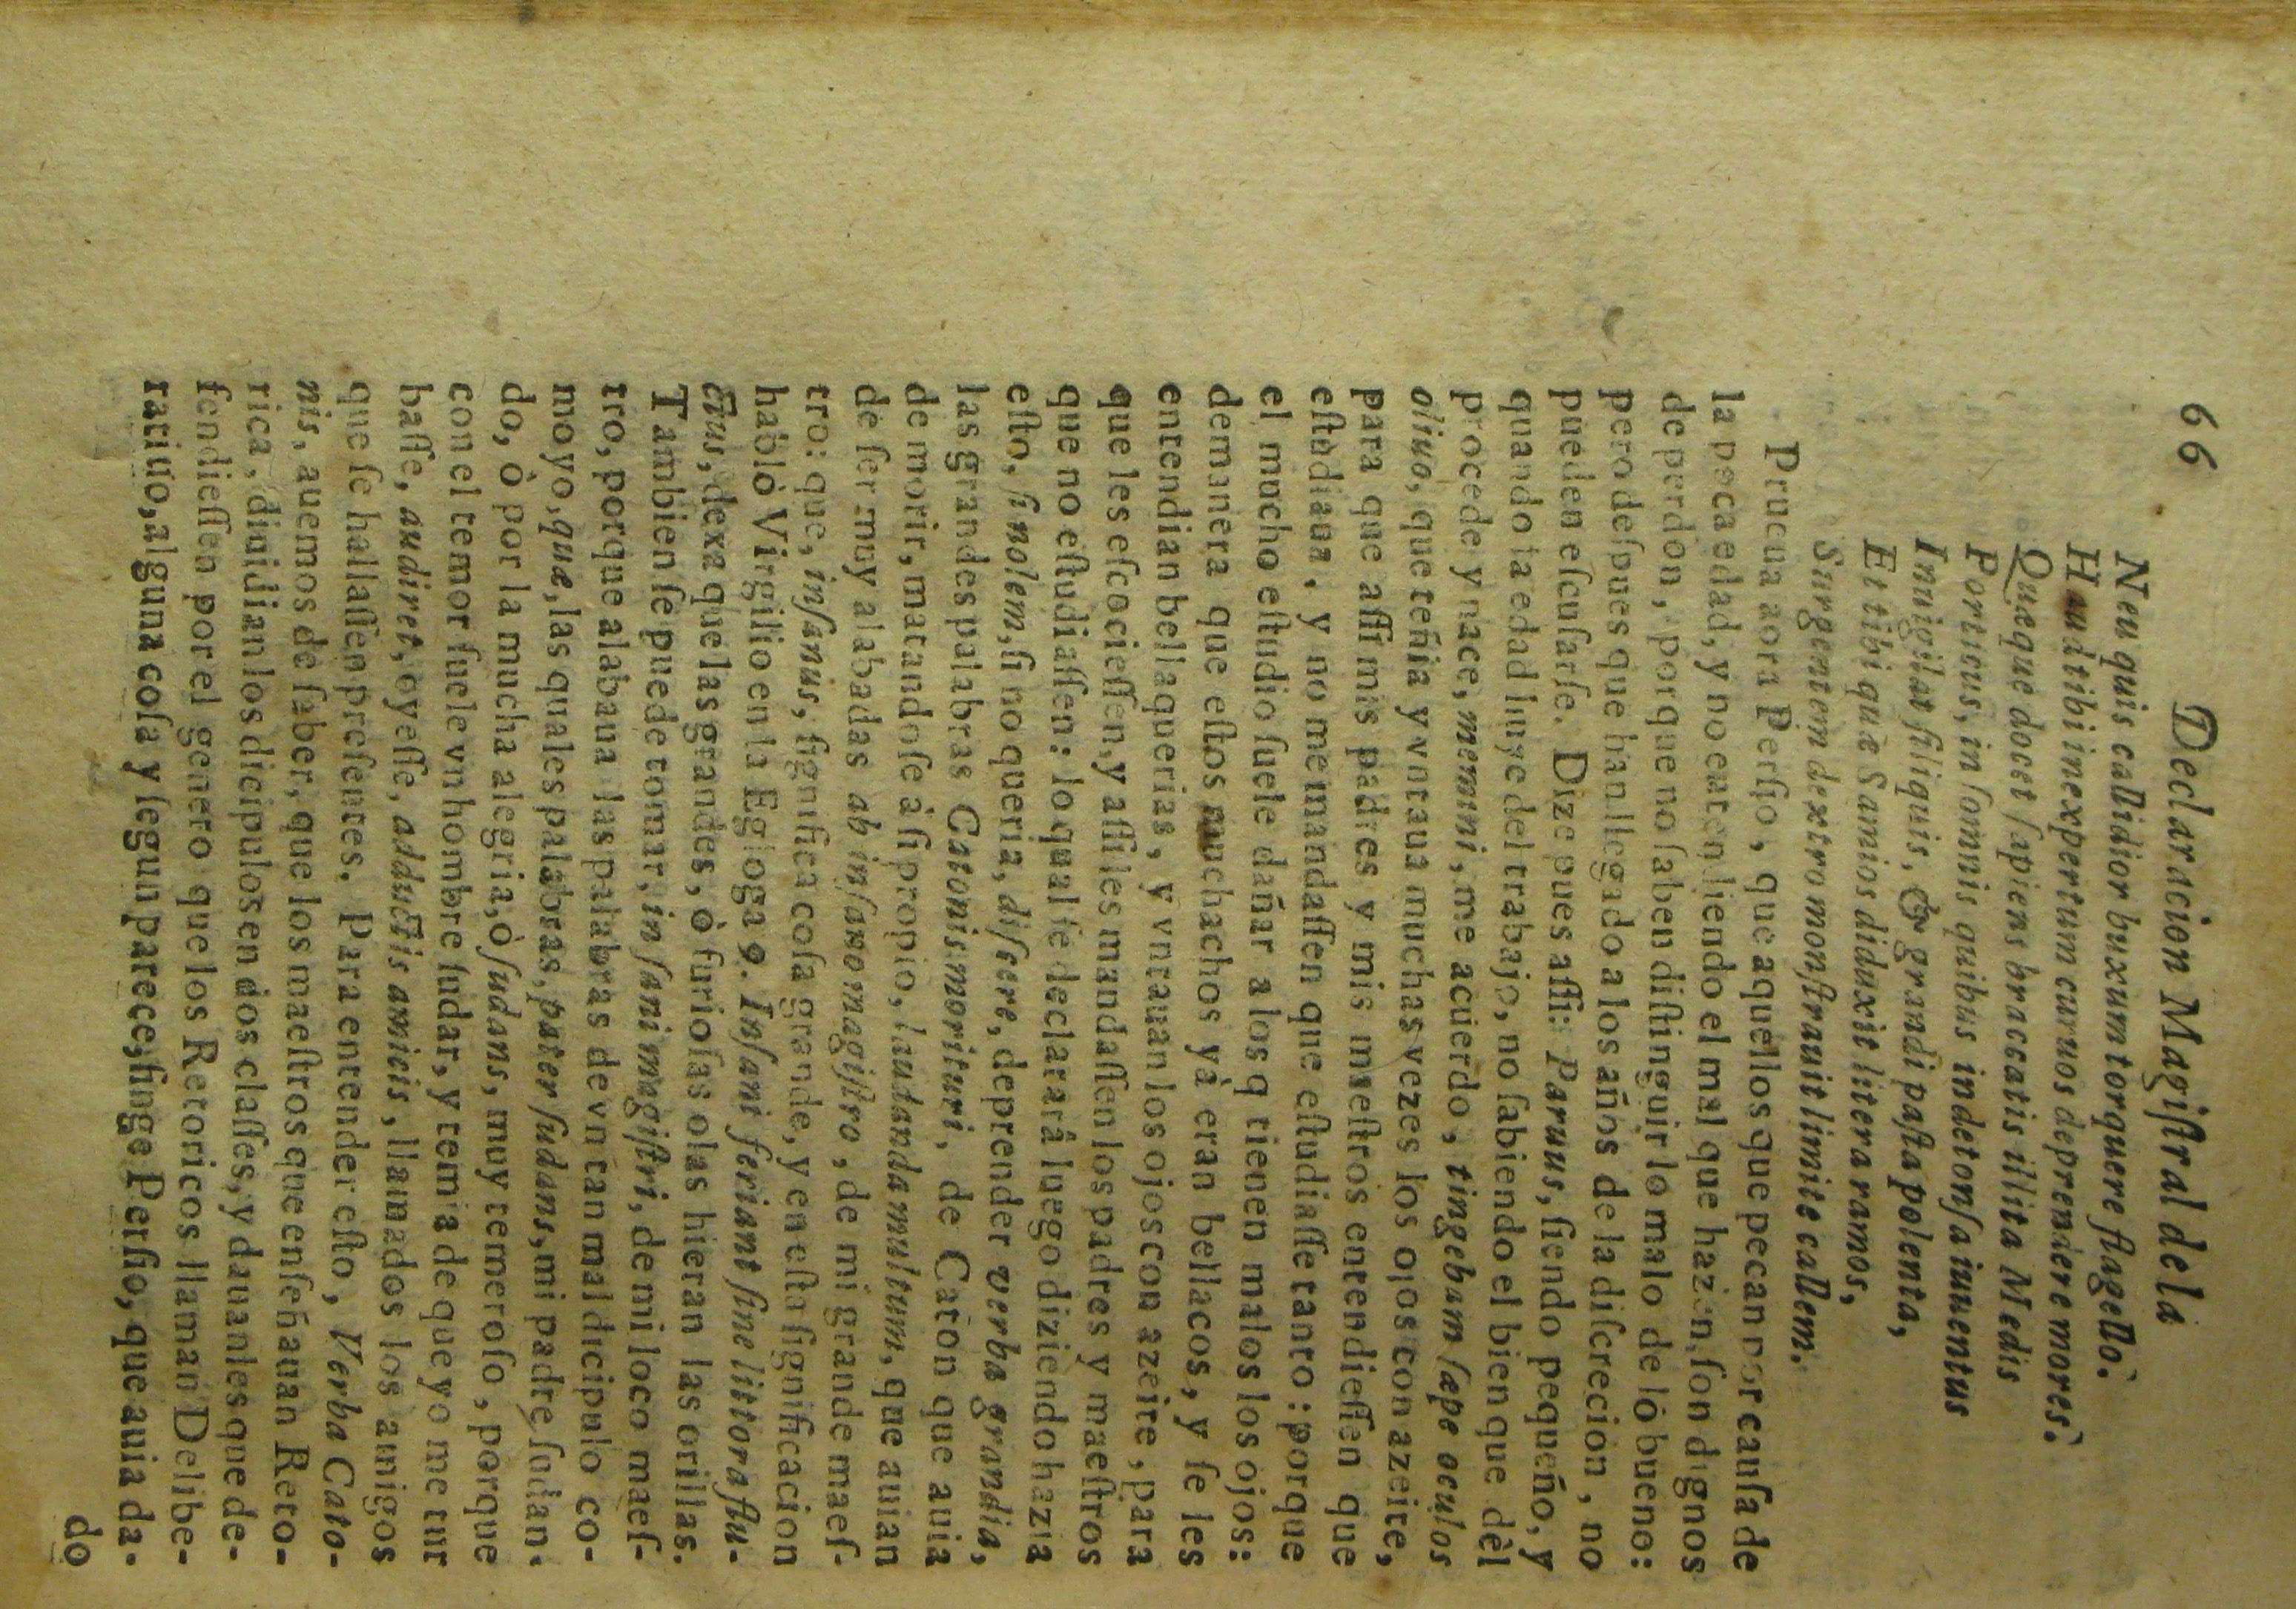 66 Declaracion Magiſtral de la
Neu quis callidior buxum torquere flagello.
Haud tibi inexpertum curuos deprendere mores.
Quæque docet ſapiens braccatis illita Medis
Porticus, in ſomnis quibus indetonſa iuuentus
Inuigilat ſiliquis, & grandi paſta polenta,
Et tibi quæ Samios diduxit litera ramos,
Surgentem dextro monſtrauit limite callem.
Prueua aora Perſio, que aquellos que pecan por cauſa de
la poca edad, y no eatendiendo el mal que hazen, ſon dignos
de perdon, porque no ſaben diſtinguir lo malo de lo bueno:
pero deſpues que han llegado a los años de la diſcrecion, no
pueden eſcuſarſe. Dize pues aſſi: Paruus, ſiendo pequeño, y
quando la edad huye del trabajo, no ſabiendo el bien que dèl
procede y nace, memini, me acuerdo, tingebam ſæpe oculos
oliuo, que teñia y vntaua muchas vezes los ojos con azeite,
para que aſſi mis padres y mis maeſtros entendieſſen que
eſtudiaua, y no me mandaſſen que eſtudiaſſe tanto: porque
el mucho eſtudio ſuele dañar a los q tienen malos los ojos:
demanera que eſtos muchachos yà eran bellacos, y ſe les
entendian bellaquerias, y vntauan los ojos con azeite, para
que les eſcocieſſen, y aſſi les mandaſſen los padres y maeſtros
que no eſtudiaſſen: lo qual ſe declararà luego diziendo hazia
eſto, ſi nolem, ſi no queria, diſcere, deprender verba grandia,
las grandes palabras Catonis morituri, de Caton que auia
de morir, matandoſe à ſi propio, laudanda multum, que auian
de ſer muy alabadas ab inſano magiſtro, de mi grande maeſ-
tro: que, inſanus, ſignifica coſa grande, y en eſta ſignificacion
hablò Virgilio en la Egloga 9. Inſani feriant ſine littora flu-
ctus, dexa que las grandes, ò furioſas olas hieran las orillas.
Tambien ſe puede tomar, inſani magiſtri, de mi loco maeſ-
tro, porque alabaua las palabras de vn tan mal dicipulo co-
mo yo, quæ, las quales palabras, pater ſudans, mi padre ſudan-
do, ò por la mucha alegria, ò ſudans, muy temeroſo, porque
con el temor ſuele vn hombre ſudar, y temia de que yo me tur
baſſe, audiret, oyeſſe, adductis amicis, llamados los amigos
que ſe hallaſſen preſentes. Para entender eſto, Verba Cato-
nis, auemos de ſaber, que los maeſtros que enſeñauan Reto-
rica, diuidian los dicipulos en dos claſſes, y dauanles que de-
fendieſſen por el genero que los Retoricos llaman Delibe-
ratiuo, alguna coſa y ſegun parece, finge Perſio, que auia da-
do